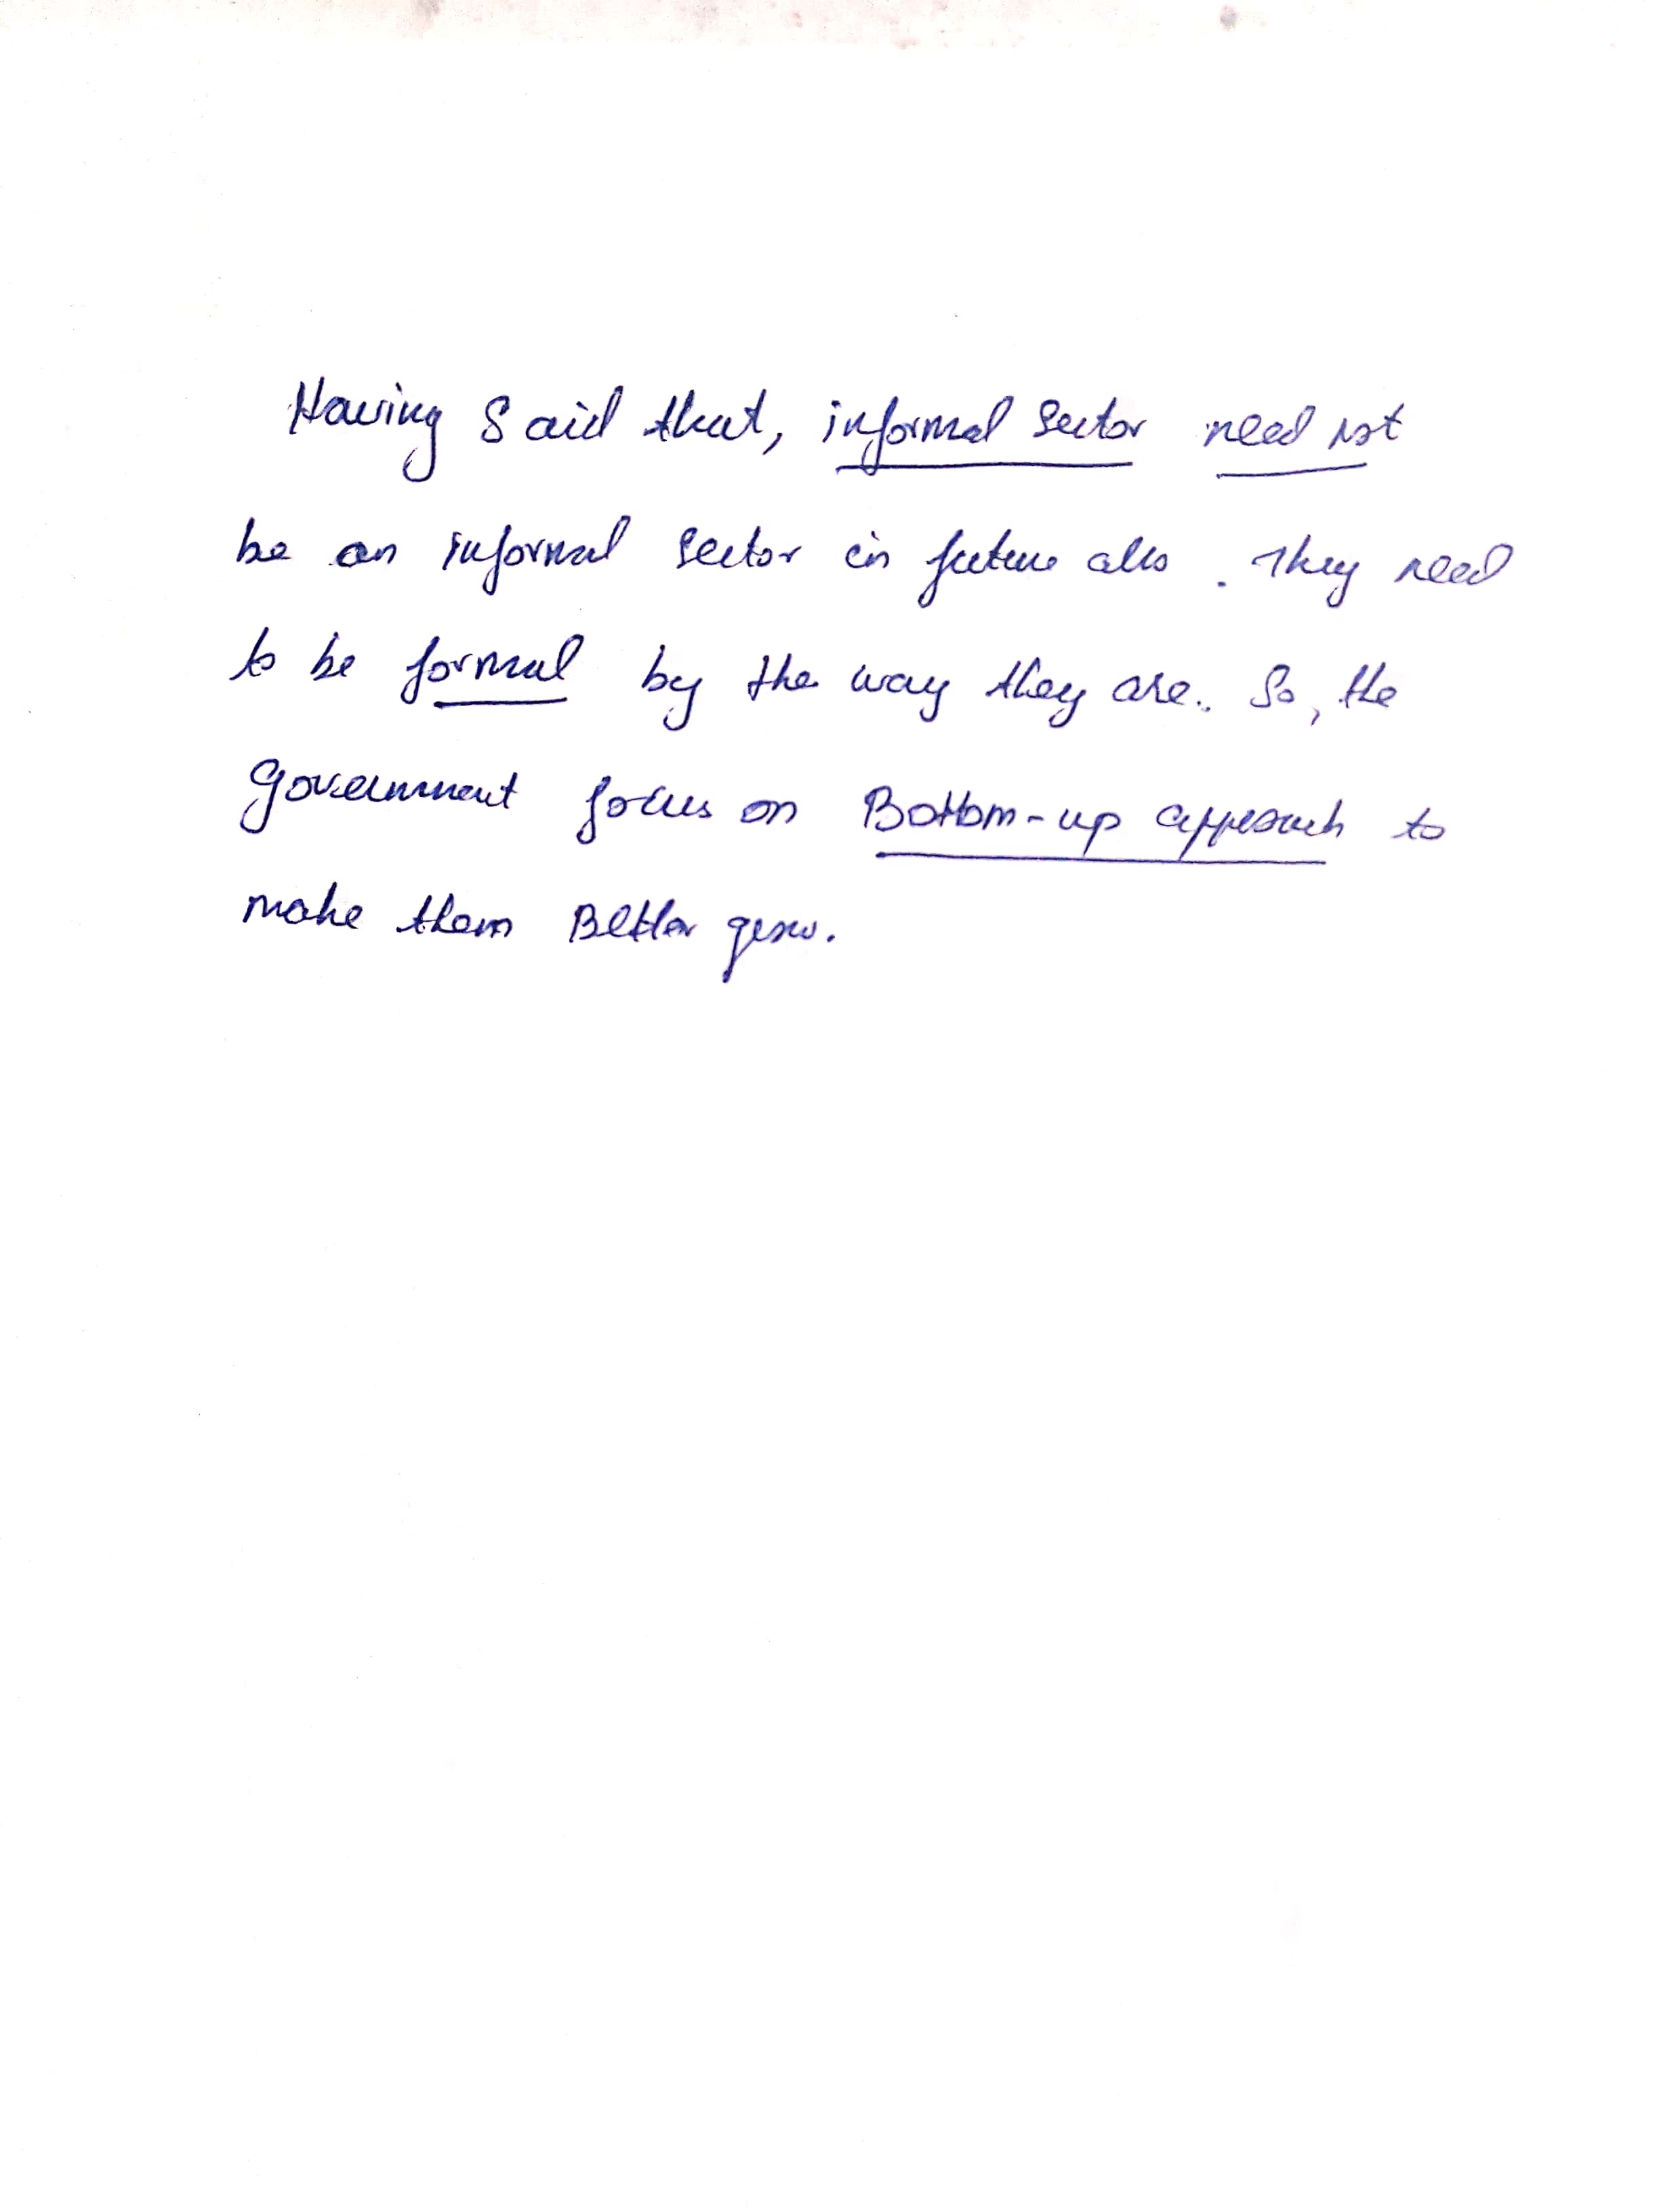 Having Said that, informal sector need not
be an informal sector in future also. They need
to be formal by the way they are. So, the
Government focus on Bottom-up approach to
make them Better grow.